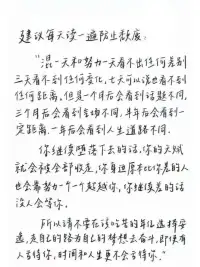 建议每天读一遍防止颓废:
"混一天和努力一天看不出任何差别
三天看不到任何变化,七天可以说也看不到
任何距离,但是一个月后会看到话题不同,
三个月后会看到气场不同,半年后会看到一
定距离,一年后会看到人生道路不同.
你继续堕落下去的话,你的天赋
就会被全部收走,你身边原本比你差的人
也会靠努力一个个超越你,你继续差的话
没人会等你.
所以请不要在该吃苦的年纪选择安
逸,走自己的路为自己的梦想去奋斗,即使有
人会待你,时间和人生更不会善待你."